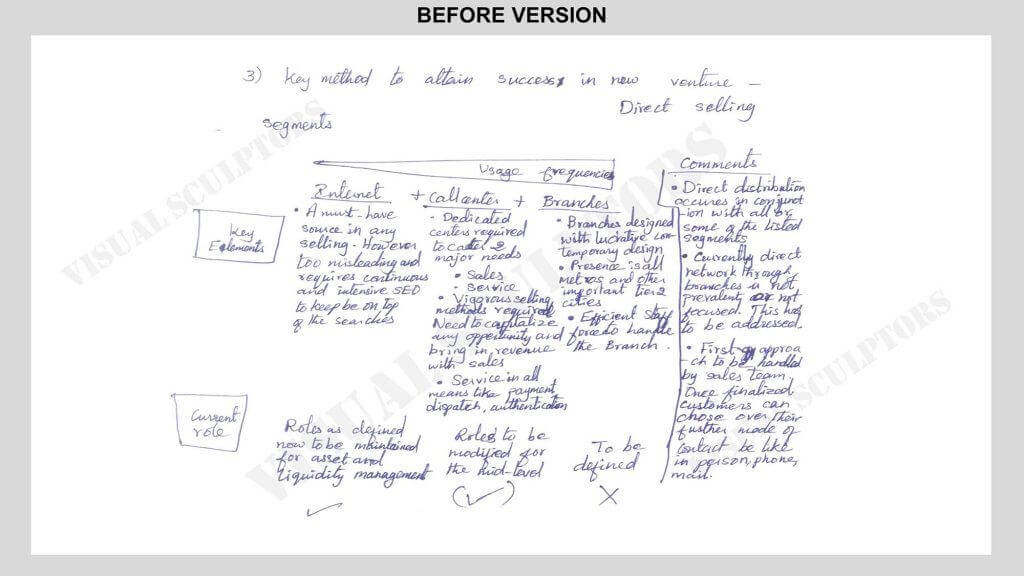 BEFORE VERSION
3) Key method to attain success in new venture –
Direct selling
segments
Usage frequencies
Internet + Call center + Branches
Comments
Key
Elements
• A must-have
source in any
selling. However
too misleading and
requires continuous
and intensive SEO
to keep be on top
of the searches
- Dedicated
centers required
to cater 2
major needs
• Sales
• Service
• Vigrous selling
methods required
Need to capitalize
any opportunity and
bring in revenue
with sales
• Service in all
means like payment
dispatch, authentication
• Branches designed
with lucrative con-
temporary design
• Presence is all
metros and other
important tier 2
cities
• Efficient staff
force to handle
the Branch.
• Direct distribution
occures in conjunct
-ion with all or
some of the listed
segments
• Currently direct
network through
branches is not
prevalent or not
focused. This has
to be addressed.
• First approa
-ch to be handled
by sales team.
Once finalized
customers can
chose over their
further mode of
contact be like
in person, phone,
mail.
Current
role
Roles as defined
now to be maintained
for asset and
liquidity management
Roles to be
modified for
the mid-level
To be
defined
VISUAL SCULPTORS
VISUAL SCULPTORS
VISUAL SCULPTORS